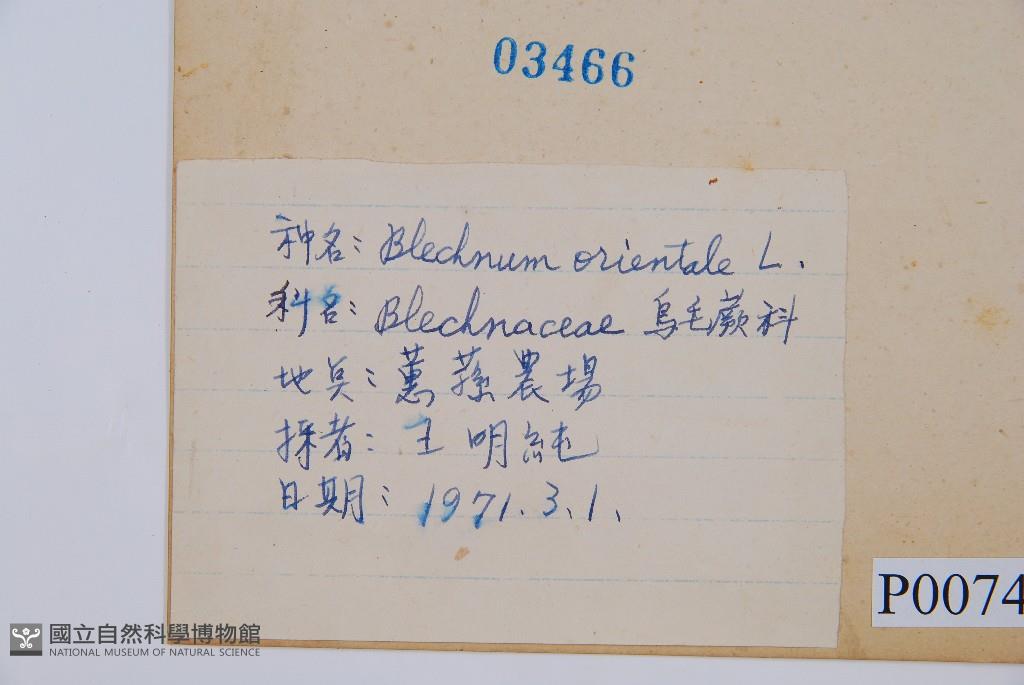 03466
种名: Blechnum orientale L.
科名: Blechnaceae 烏毛蕨科
地点: 蕙蓀農場
採者: 王明純
日期: 1971.3.1.
P0074
國立自然科學博物館
NATIONAL MUSEUM OF NATURAL SCIENCE